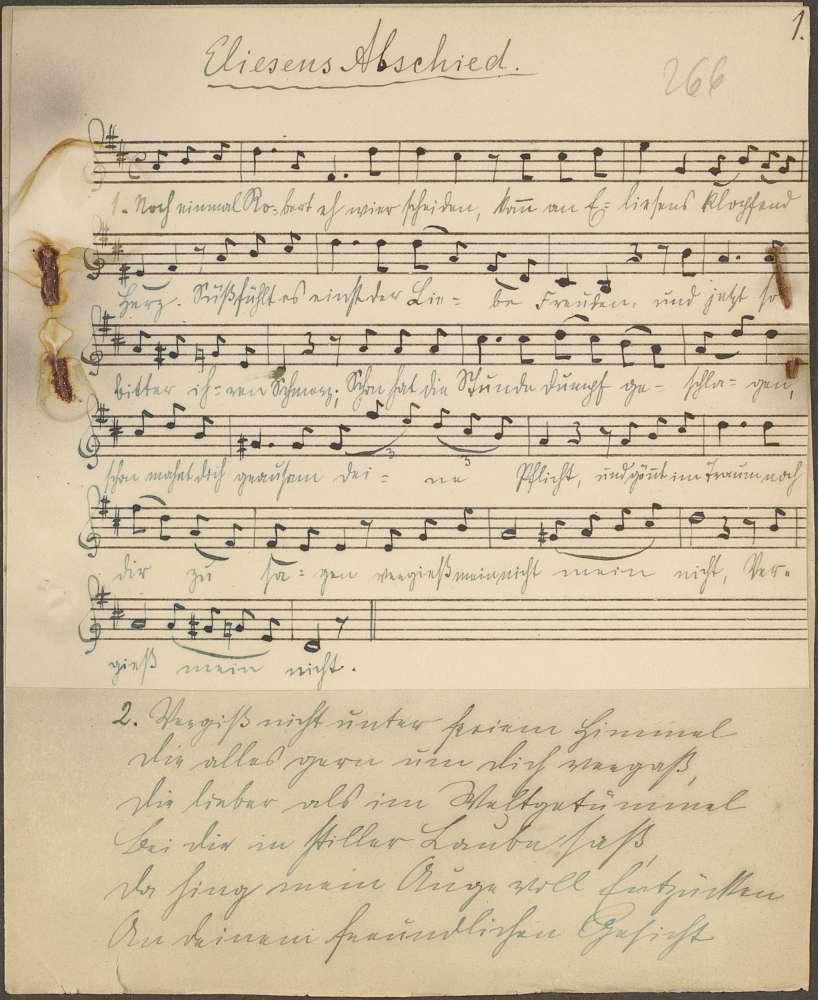 1.
Eliesens Abschied.
266
1. Noch einmal Ro-bert eh wier scheiden, kom an E= liesens klopfend
Herz. Süß fühlt es einst der Lie= be Freuden, und jetzt so
bitter ih=ren Schmerz; Schon hat die Stunde dumpf ge= schla= gen,
schon mahnt dich grausam dei= ne Pflicht, und gönt im Traum noch
dir zu sa= gen vergieß mein nicht mein nicht, Ver=
gieß mein nicht.
2. Vergiß nicht unter freiem Himmel
Die alles gern um dich vergaß,
Die lieber als im Weltgetümmel
Bei dir in stiller Laube saß,
Da hing mein Auge voll Entzücken
An deinem freundlichen Gesicht